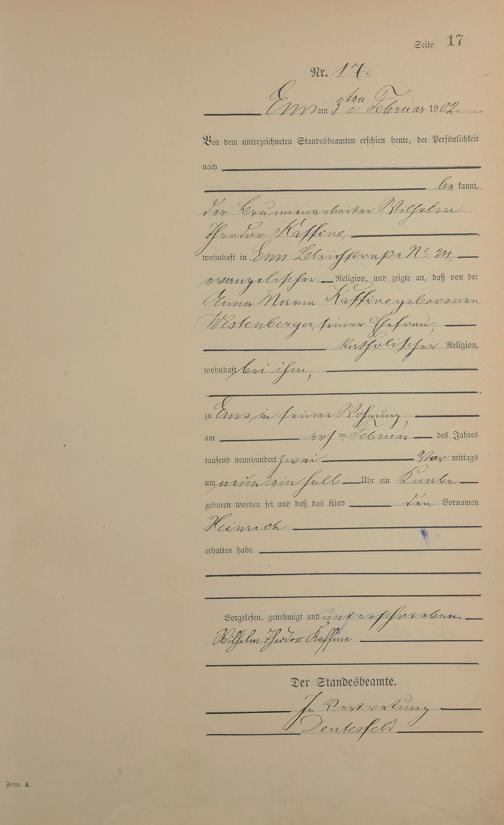 Seite 17
Nr. 17.
Ems am 3ten Februar 1902.
Vor dem unterzeichneten Standesbeamten erschien heute, der Persönlichkeit
nach
bekannt,
der Brunnenarbeiter Wilhelm
Theodor Kaffine,
wohnhaft in Ems Bleichstraße No 24,
evangelischer Religion, und zeigte an, daß von der
Anna Maria Kaffine geborenen
Westenberger, seiner Ehefrau,
katholischer Religion,
wohnhaft bei ihm,
zu Ems in seiner Wohnung,
am ersten Februar des Jahres
tausend neunhundert zwei Vor mittags
um neun ein halb Uhr ein Knabe
geboren worden sei und daß das Kind den Vornamen
Heinrich
erhalten habe.
Vorgelesen, genehmigt und unterschrieben
Wilhelm Theodor Kaffine
Der Standesbeamte.
In Vertretung
Form. A.